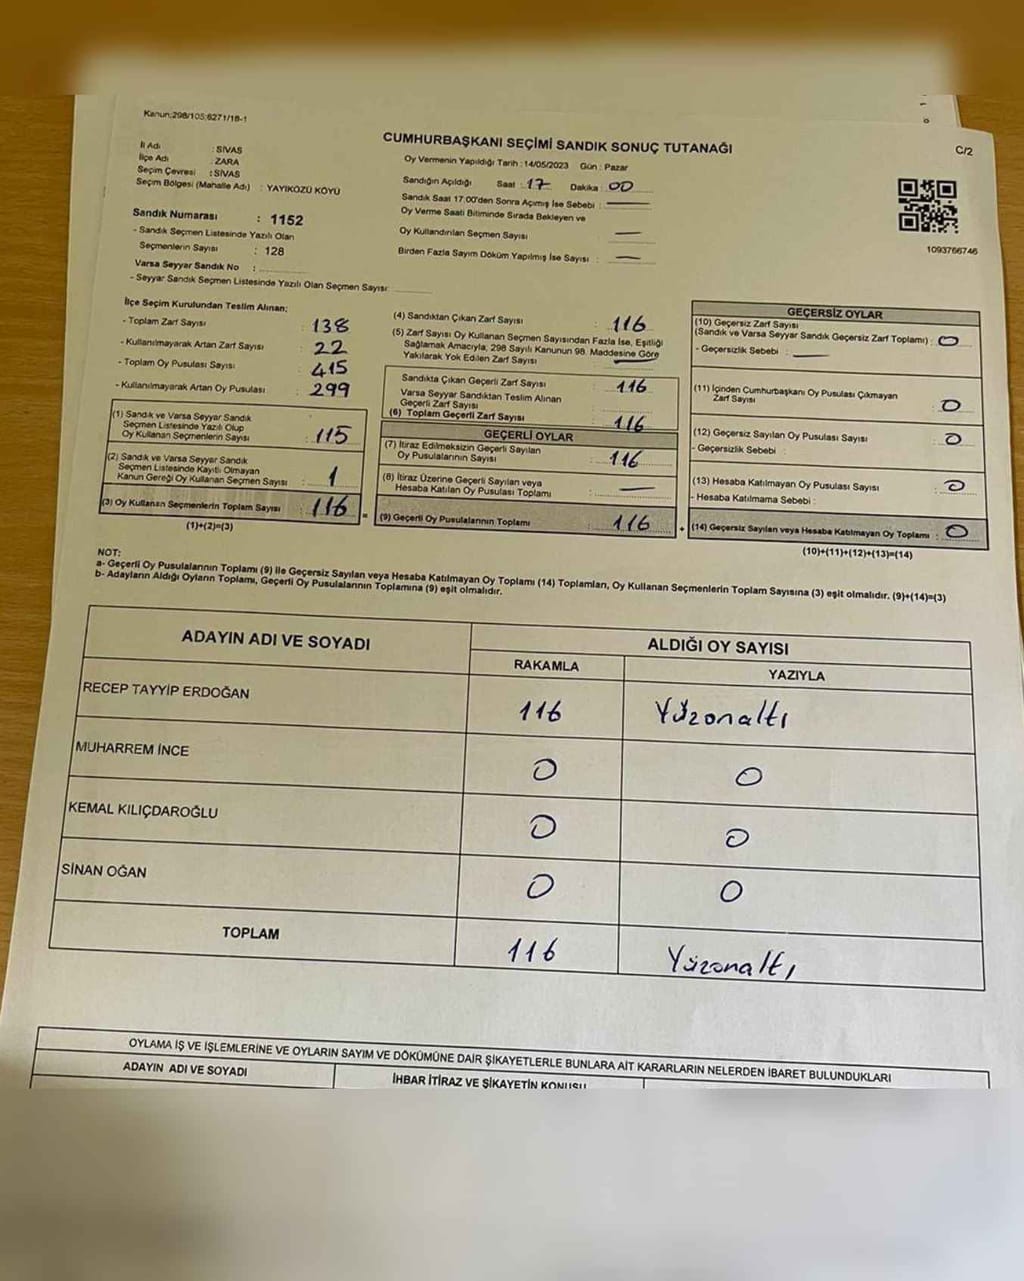 Kanun:298/105;6271/18-1
CUMHURBAŞKANI SEÇİMİ SANDIK SONUÇ TUTANAĞI
C/2
İl Adı : SİVAS
İlçe Adı : ZARA
Seçim Çevresi : SİVAS
Seçim Bölgesi (Mahalle Adı) : YAYIKÖZÜ KÖYÜ
Sandık Numarası : 1152
- Sandık Seçmen Listesinde Yazılı Olan
Seçmenlerin Sayısı : 128
Varsa Seyyar Sandık No :
- Seyyar Sandık Seçmen Listesinde Yazılı Olan Seçmen Sayısı:
Oy Vermenin Yapıldığı Tarih : 14/05/2023 Gün : Pazar
Sandığın Açıldığı Saat : 17 Dakika : 00
Sandık Saat 17.00'den Sonra Açımış İse Sebebi : —
Oy Verme Saati Bitiminde Sırada Bekleyen ve
Oy Kullandırılan Seçmen Sayısı —
Birden Fazla Sayım Döküm Yapılmış İse Sayısı : —
1093766746
İlçe Seçim Kurulundan Teslim Alınan;
- Toplam Zarf Sayısı : 138
- Kullanılmayarak Artan Zarf Sayısı : 22
- Toplam Oy Pusulası Sayısı : 415
- Kullanılmayarak Artan Oy Pusulası : 299
(1) Sandık ve Varsa Seyyar Sandık
Seçmen Listesinde Yazılı Olup
Oy Kullanan Seçmenlerin Sayısı : 115
(2) Sandık ve Varsa Seyyar Sandık
Seçmen Listesinde Kayıtlı Olmayan
Kanun Gereği Oy Kullanan Seçmen Sayısı : 1
(3) Oy Kullanan Seçmenlerin Toplam Sayısı : 116
(1)+(2)=(3)
=
(4) Sandıktan Çıkan Zarf Sayısı : 116
(5) Zarf Sayısı Oy Kullanan Seçmen Sayısından Fazla İse, Eşitliği
Sağlamak Amacıyla, 298 Sayılı Kanunun 98. Maddesine Göre
Yakılarak Yok Edilen Zarf Sayısı : —
Sandıkta Çıkan Geçerli Zarf Sayısı : 116
Varsa Seyyar Sandıktan Teslim Alınan
Geçerli Zarf Sayısı :
(6) Toplam Geçerli Zarf Sayısı : 116
GEÇERLİ OYLAR
(7) İtiraz Edilmeksizin Geçerli Sayılan
Oy Pusulalarının Sayısı : 116
(8) İtiraz Üzerine Geçerli Sayılan veya
Hesaba Katılan Oy Pusulası Toplamı : —
(9) Geçerli Oy Pusulalarının Toplamı : 116
+
GEÇERSİZ OYLAR
(10) Geçersiz Zarf Sayısı
(Sandık ve Varsa Seyyar Sandık Geçersiz Zarf Toplamı) : 0
- Geçersizlik Sebebi : —
(11) İçinden Cumhurbaşkanı Oy Pusulası Çıkmayan
Zarf Sayısı : 0
(12) Geçersiz Sayılan Oy Pusulası Sayısı : 0
- Geçersizlik Sebebi :
(13) Hesaba Katılmayan Oy Pusulası Sayısı : 0
- Hesaba Katılmama Sebebi :
(14) Geçersiz Sayılan veya Hesaba Katılmayan Oy Toplamı : 0
(10)+(11)+(12)+(13)=(14)
NOT:
a- Geçerli Oy Pusulalarının Toplamı (9) ile Geçersiz Sayılan veya Hesaba Katılmayan Oy Toplamı (14) Toplamları, Oy Kullanan Seçmenlerin Toplam Sayısına (3) eşit olmalıdır. (9)+(14)=(3)
b- Adayların Aldığı Oyların Toplamı, Geçerli Oy Pusulalarının Toplamına (9) eşit olmalıdır.
ADAYIN ADI VE SOYADI ALDIĞI OY SAYISI
RAKAMLA YAZIYLA
RECEP TAYYİP ERDOĞAN 116 Yüzonaltı
MUHARREM İNCE 0 0
KEMAL KILIÇDAROĞLU 0 0
SİNAN OĞAN 0 0
TOPLAM 116 Yüzonaltı
OYLAMA İŞ VE İŞLEMLERİNE VE OYLARIN SAYIM VE DÖKÜMÜNE DAİR ŞİKAYETLERLE BUNLARA AİT KARARLARIN NELERDEN İBARET BULUNDUKLARI
ADAYIN ADI VE SOYADI İHBAR İTİRAZ VE ŞİKAYETİN KONUSU